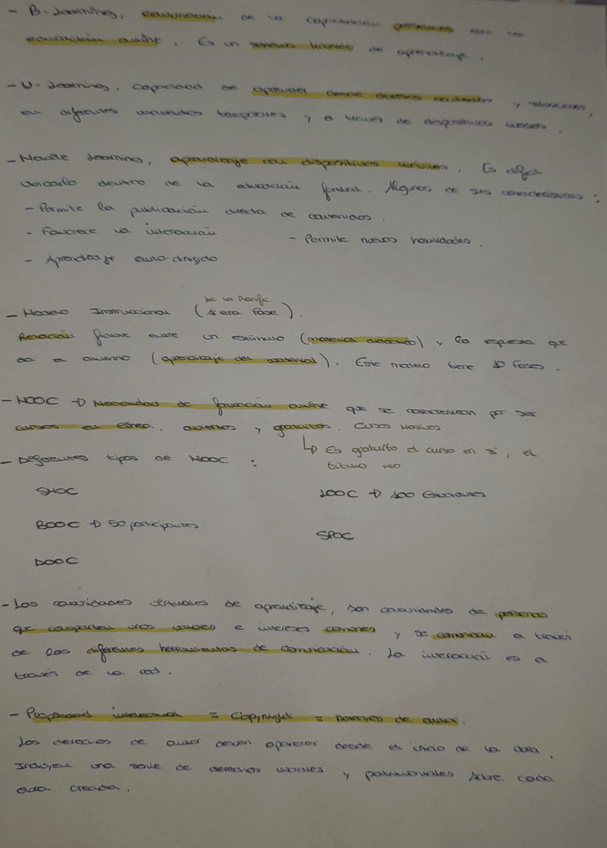 - B-Learning, combinación de la capacitación presencial con la
educación online. Es un modelo híbrido de aprendizaje.
- U-Learning, capacidad de aprender desde diversos contextos y situaciones,
en diferentes momentos temporales y a través de dispositivos móviles.
- Mobile learning, aprendizaje con dispositivos móviles. Es difícil
ubicarlo dentro de la educación formal. Algunos de sus características:
- Permite la publicación directa de contenidos.
- Favorece la interacción
- Permite nuevas habilidades.
- Aprendizaje auto-dirigido
- Modelo Instruccional (
Relación entre un estímulo ( ) y la respuesta que
da el alumno (aprendizaje del material). Este modelo tiene 10 Fases.
- MOOC → Modalidad de formación online que se caracterizan por ser
cursos en línea, abiertos y gratuitos. Cursos Masivos
↳ Es gratuito el curso en sí, el
título no
- Diferentes tipos de MOOC :
SMOC
LOOC → 100 Estudiantes
BOOC → 50 participantes.
SPOC
DOOC
- Las comunidades virtuales de aprendizaje, son comunidades de personas
que comparten unos valores e intereses comunes y se comunican a través
de las diferentes herramientas de comunicación. La interacción es a
través de la red.
- Propiedad intelectual = Copyright = Derechos de autor.
Los derechos de autor deben aparecer desde el inicio de la obra.
Incluyen una serie de derechos morales y patrimoniales sobre cada
obra creada.